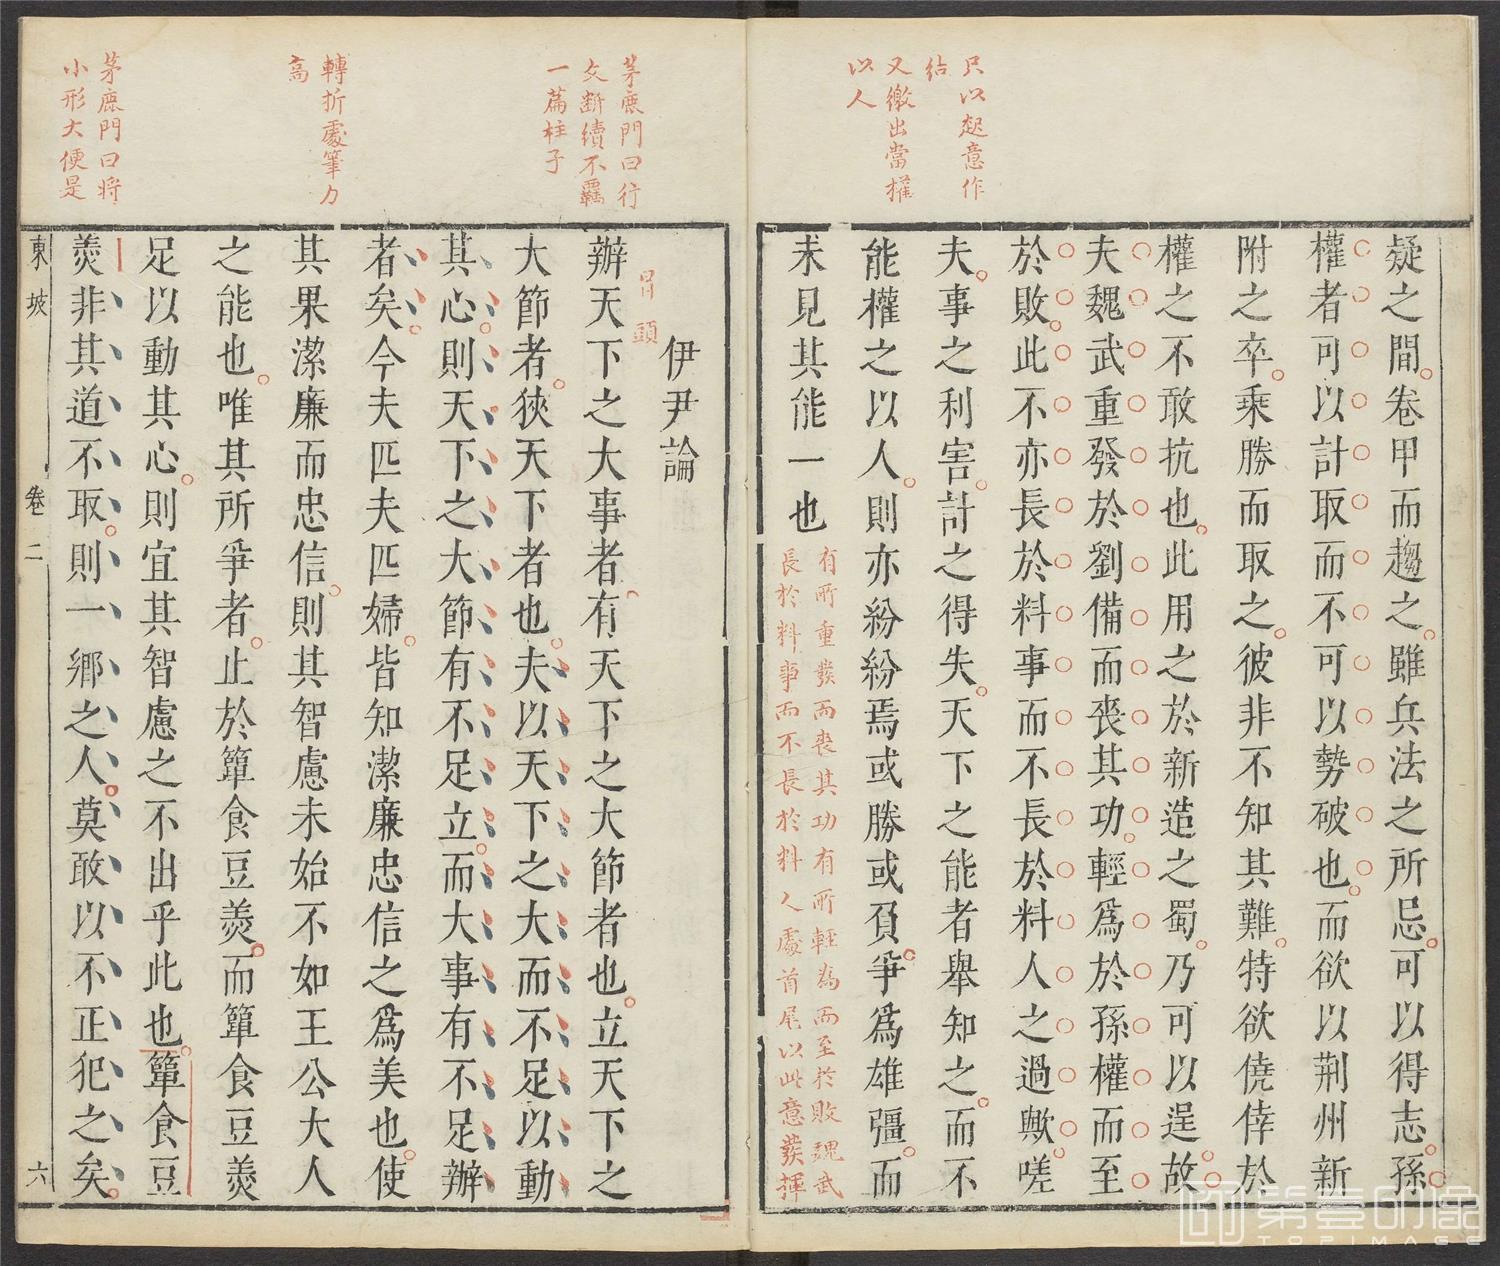 只以起意作
結
又繳出當權
以人
疑之間卷甲而趨之雖兵法之所忌可以得志孫
權者可以計取而不可以勢破也而欲以荆州新
附之卒乘勝而取之彼非不知其難特欲僥倖於
權之不敢抗也此用之於新造之蜀乃可以逞故
夫魏武重發於劉備而喪其功輕爲於孫權而至
於敗此不亦長於料事而不長於料人之過歟嗟
夫事之利害計之得失天下之能者舉知之而不
能權之以人則亦紛紛焉或勝或負爭爲雄彊而
未見其能一也
有所重發而喪其功有所輕為而至於敗魏武
長於料事而不長於料人處首尾以此意發揮
茅鹿門曰行
文斷續不羈
一篇柱子
轉折處筆力
高
茅鹿門曰將
小形大便是
伊尹論
冒頭
辦天下之大事者有天下之大節者也立天下之
大節者狹天下者也夫以天下之大而不足以動
其心則天下之大節有不足立而大事有不足辦
者矣今夫匹夫匹婦皆知潔廉忠信之爲美也使
其果潔廉而忠信則其智慮未始不如王公大人
之能也唯其所爭者止於簞食豆羹而簞食豆羹
足以動其心則宜其智慮之不出乎此也簞食豆
羹非其道不取則一鄉之人莫敢以不正犯之矣
東坡
卷二
六
第壹印像
TOPIMAGE